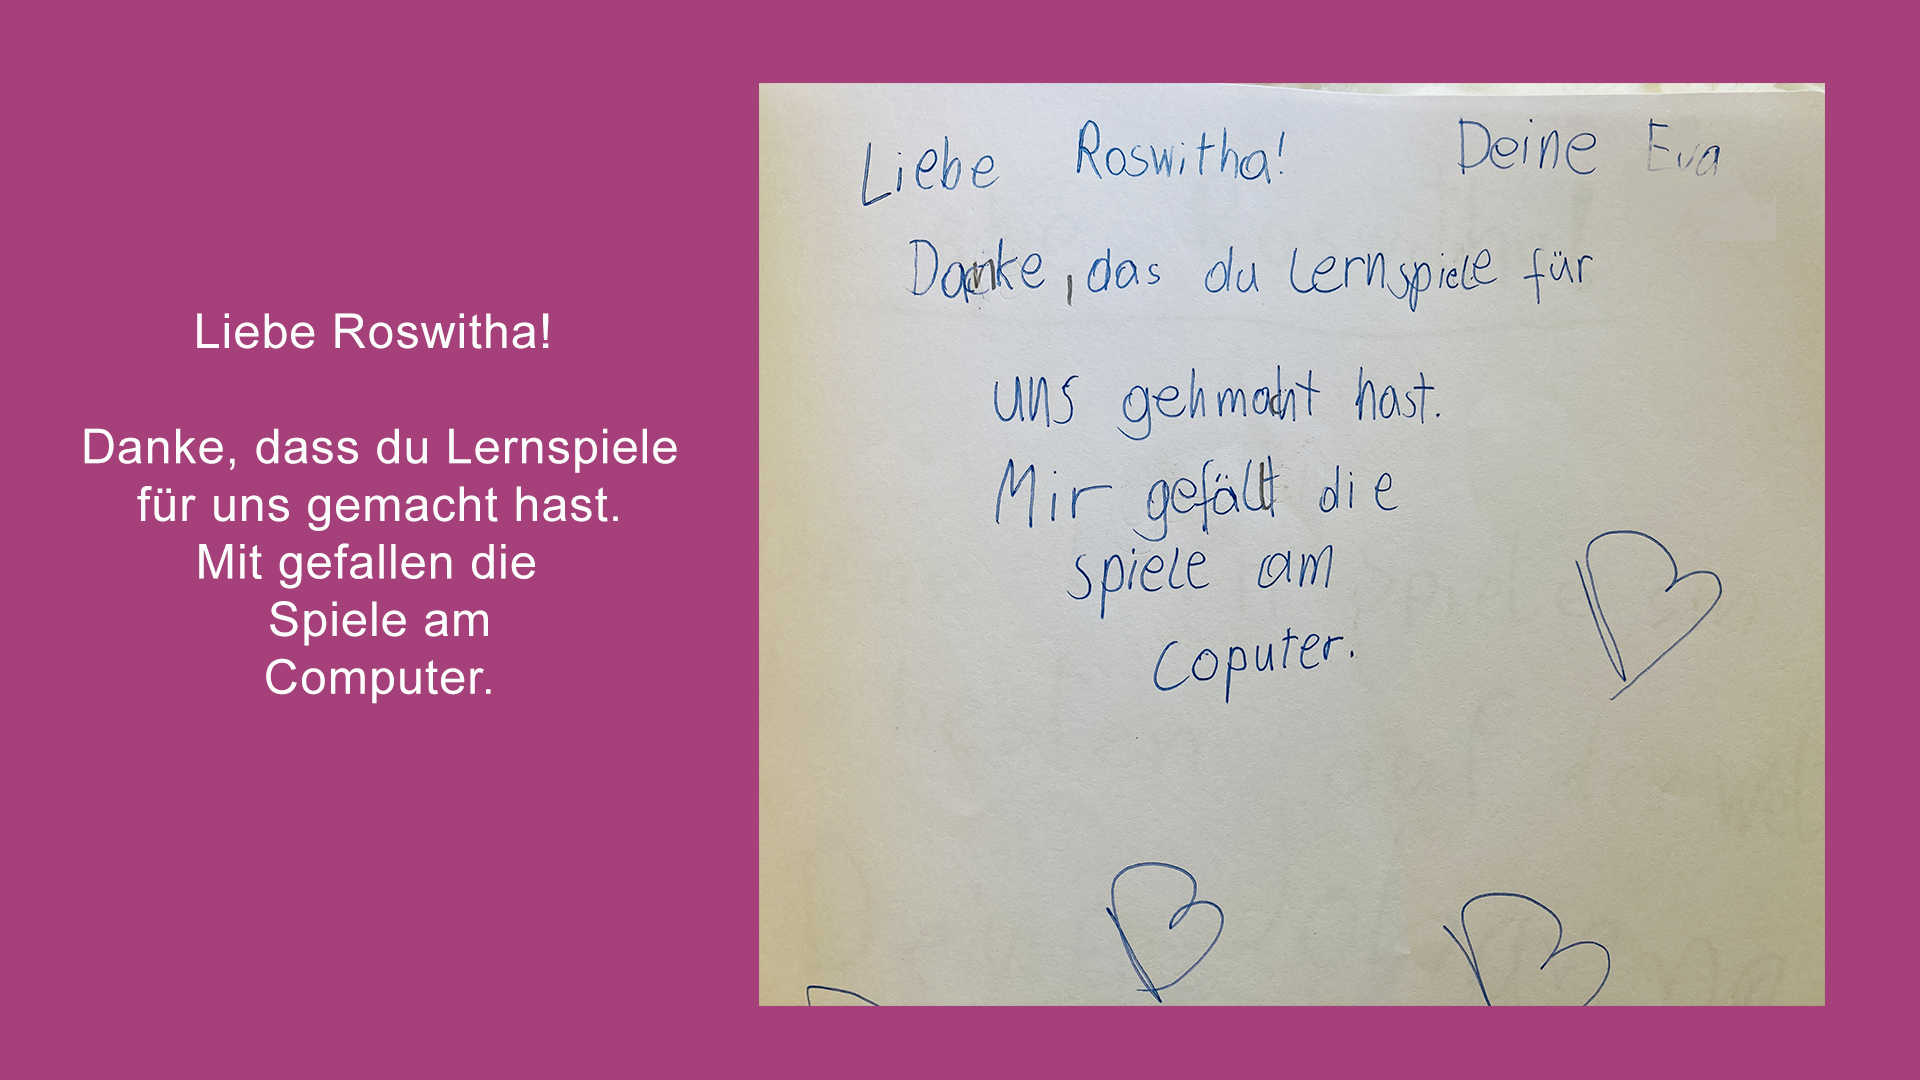 Liebe Roswitha!
Danke, dass du Lernspiele
für uns gemacht hast.
Mit gefallen die
Spiele am
Computer.
Liebe Roswitha! Deine Eva
Danke, das du Lernspiele für
uns gehmacht hast.
Mir gefällt die
spiele am
Coputer.